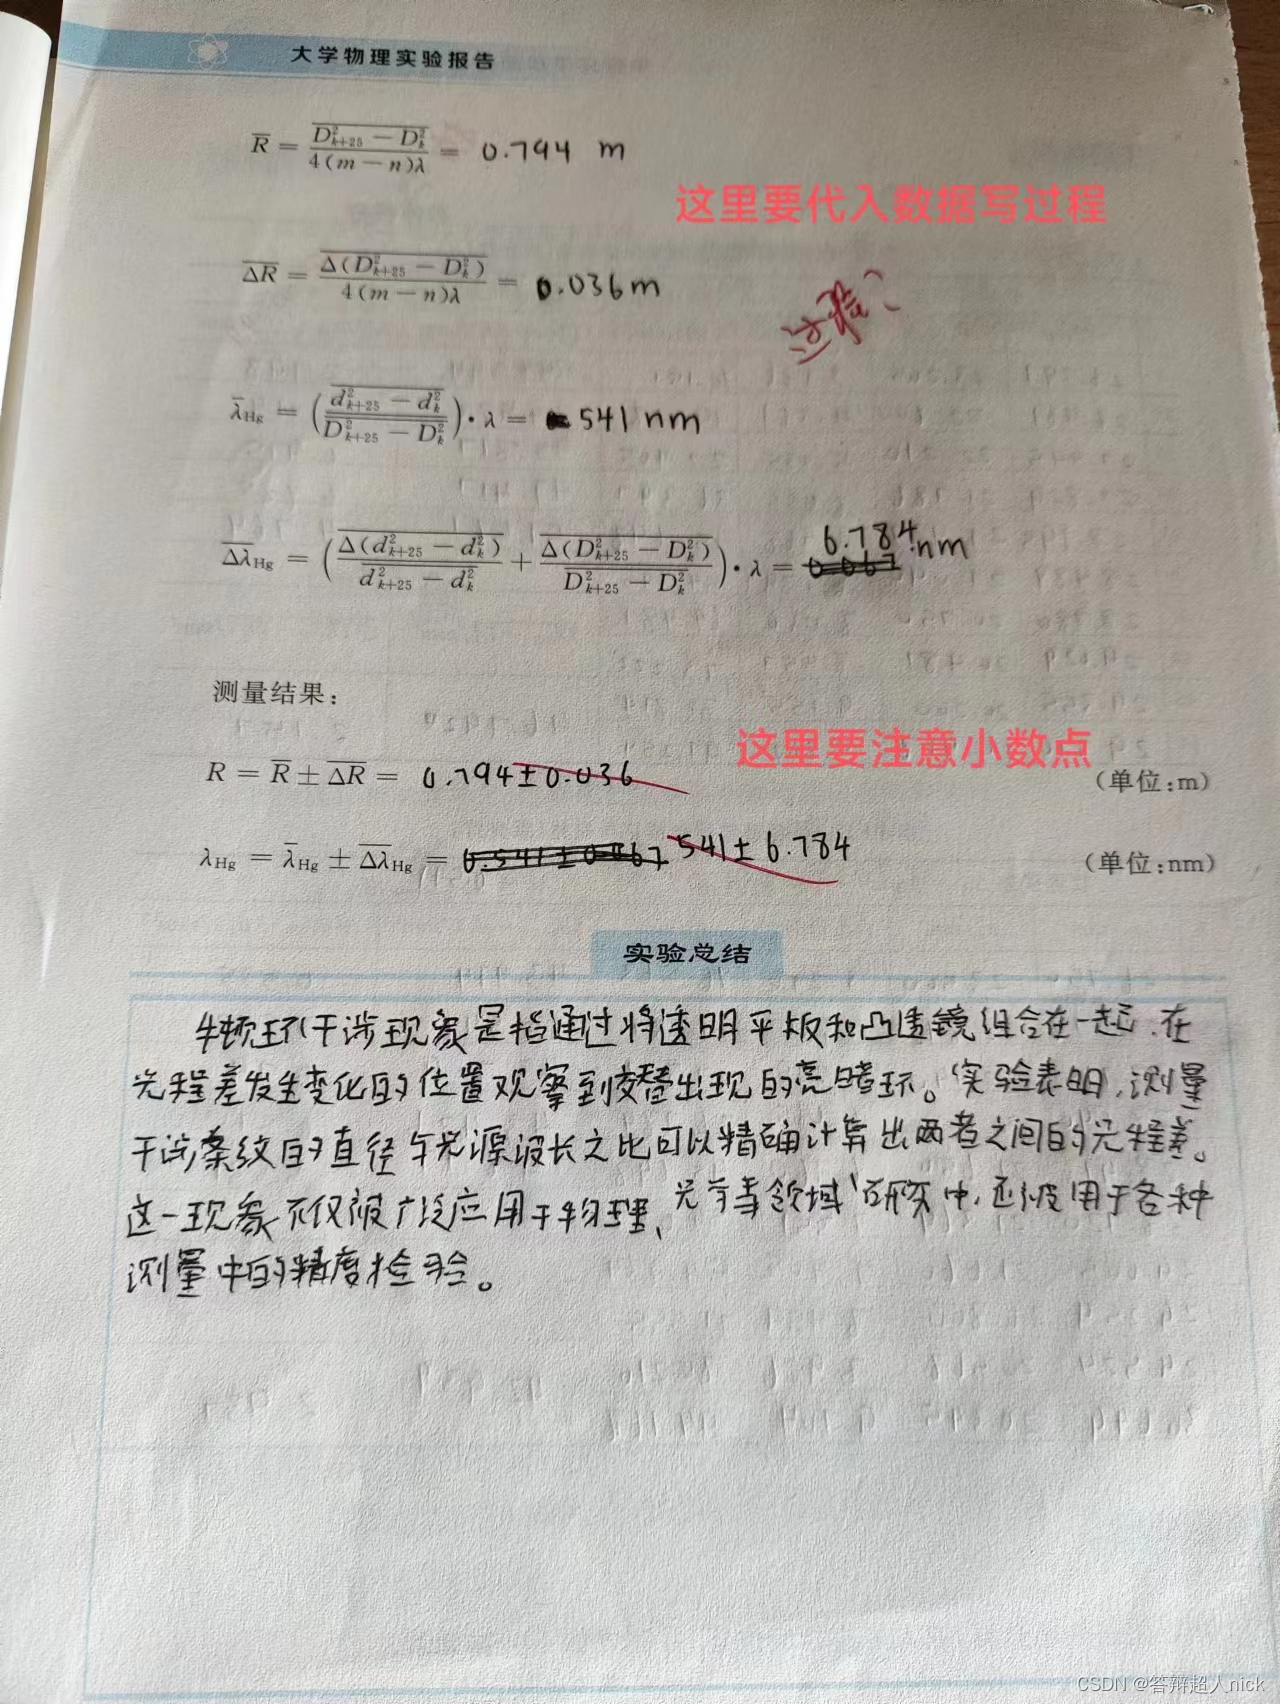 大学物理实验报告
R̅ = \overline{D²ₖ₊₂₅ − D²ₖ} / 4(m−n)λ = 0.794 m
这里要代入数据写过程
\overline{ΔR} = \overline{Δ(D²ₖ₊₂₅ − D²ₖ)} / 4(m−n)λ = 0.036m
过程?
λ̅Hg = (\overline{d²ₖ₊₂₅ − d²ₖ} / \overline{D²ₖ₊₂₅ − D²ₖ})·λ = 541 nm
\overline{Δλ}Hg = (\overline{Δ(d²ₖ₊₂₅ − d²ₖ)} / \overline{d²ₖ₊₂₅ − d²ₖ} + \overline{Δ(D²ₖ₊₂₅ − D²ₖ)} / \overline{D²ₖ₊₂₅ − D²ₖ})·λ = 0.067 6.784 nm
测量结果:
这里要注意小数点
R = R̅ ± \overline{ΔR} = 0.794±0.036 (单位:m)
λHg = λ̅Hg ± \overline{Δλ}Hg = 0.541±0.067 541±6.784 (单位:nm)
实验总结
牛顿环干涉现象是指通过将透明平板和凸透镜组合在一起,在
光程差发生变化的位置观察到交替出现的亮暗环。实验表明,测量
干涉条纹的直径与光源波长之比可以精确计算出两者之间的光程差。
这一现象不仅被广泛应用于物理、光学等领域研究中,还被用于各种
测量中的精度检验。
CSDN @答辩超人nick